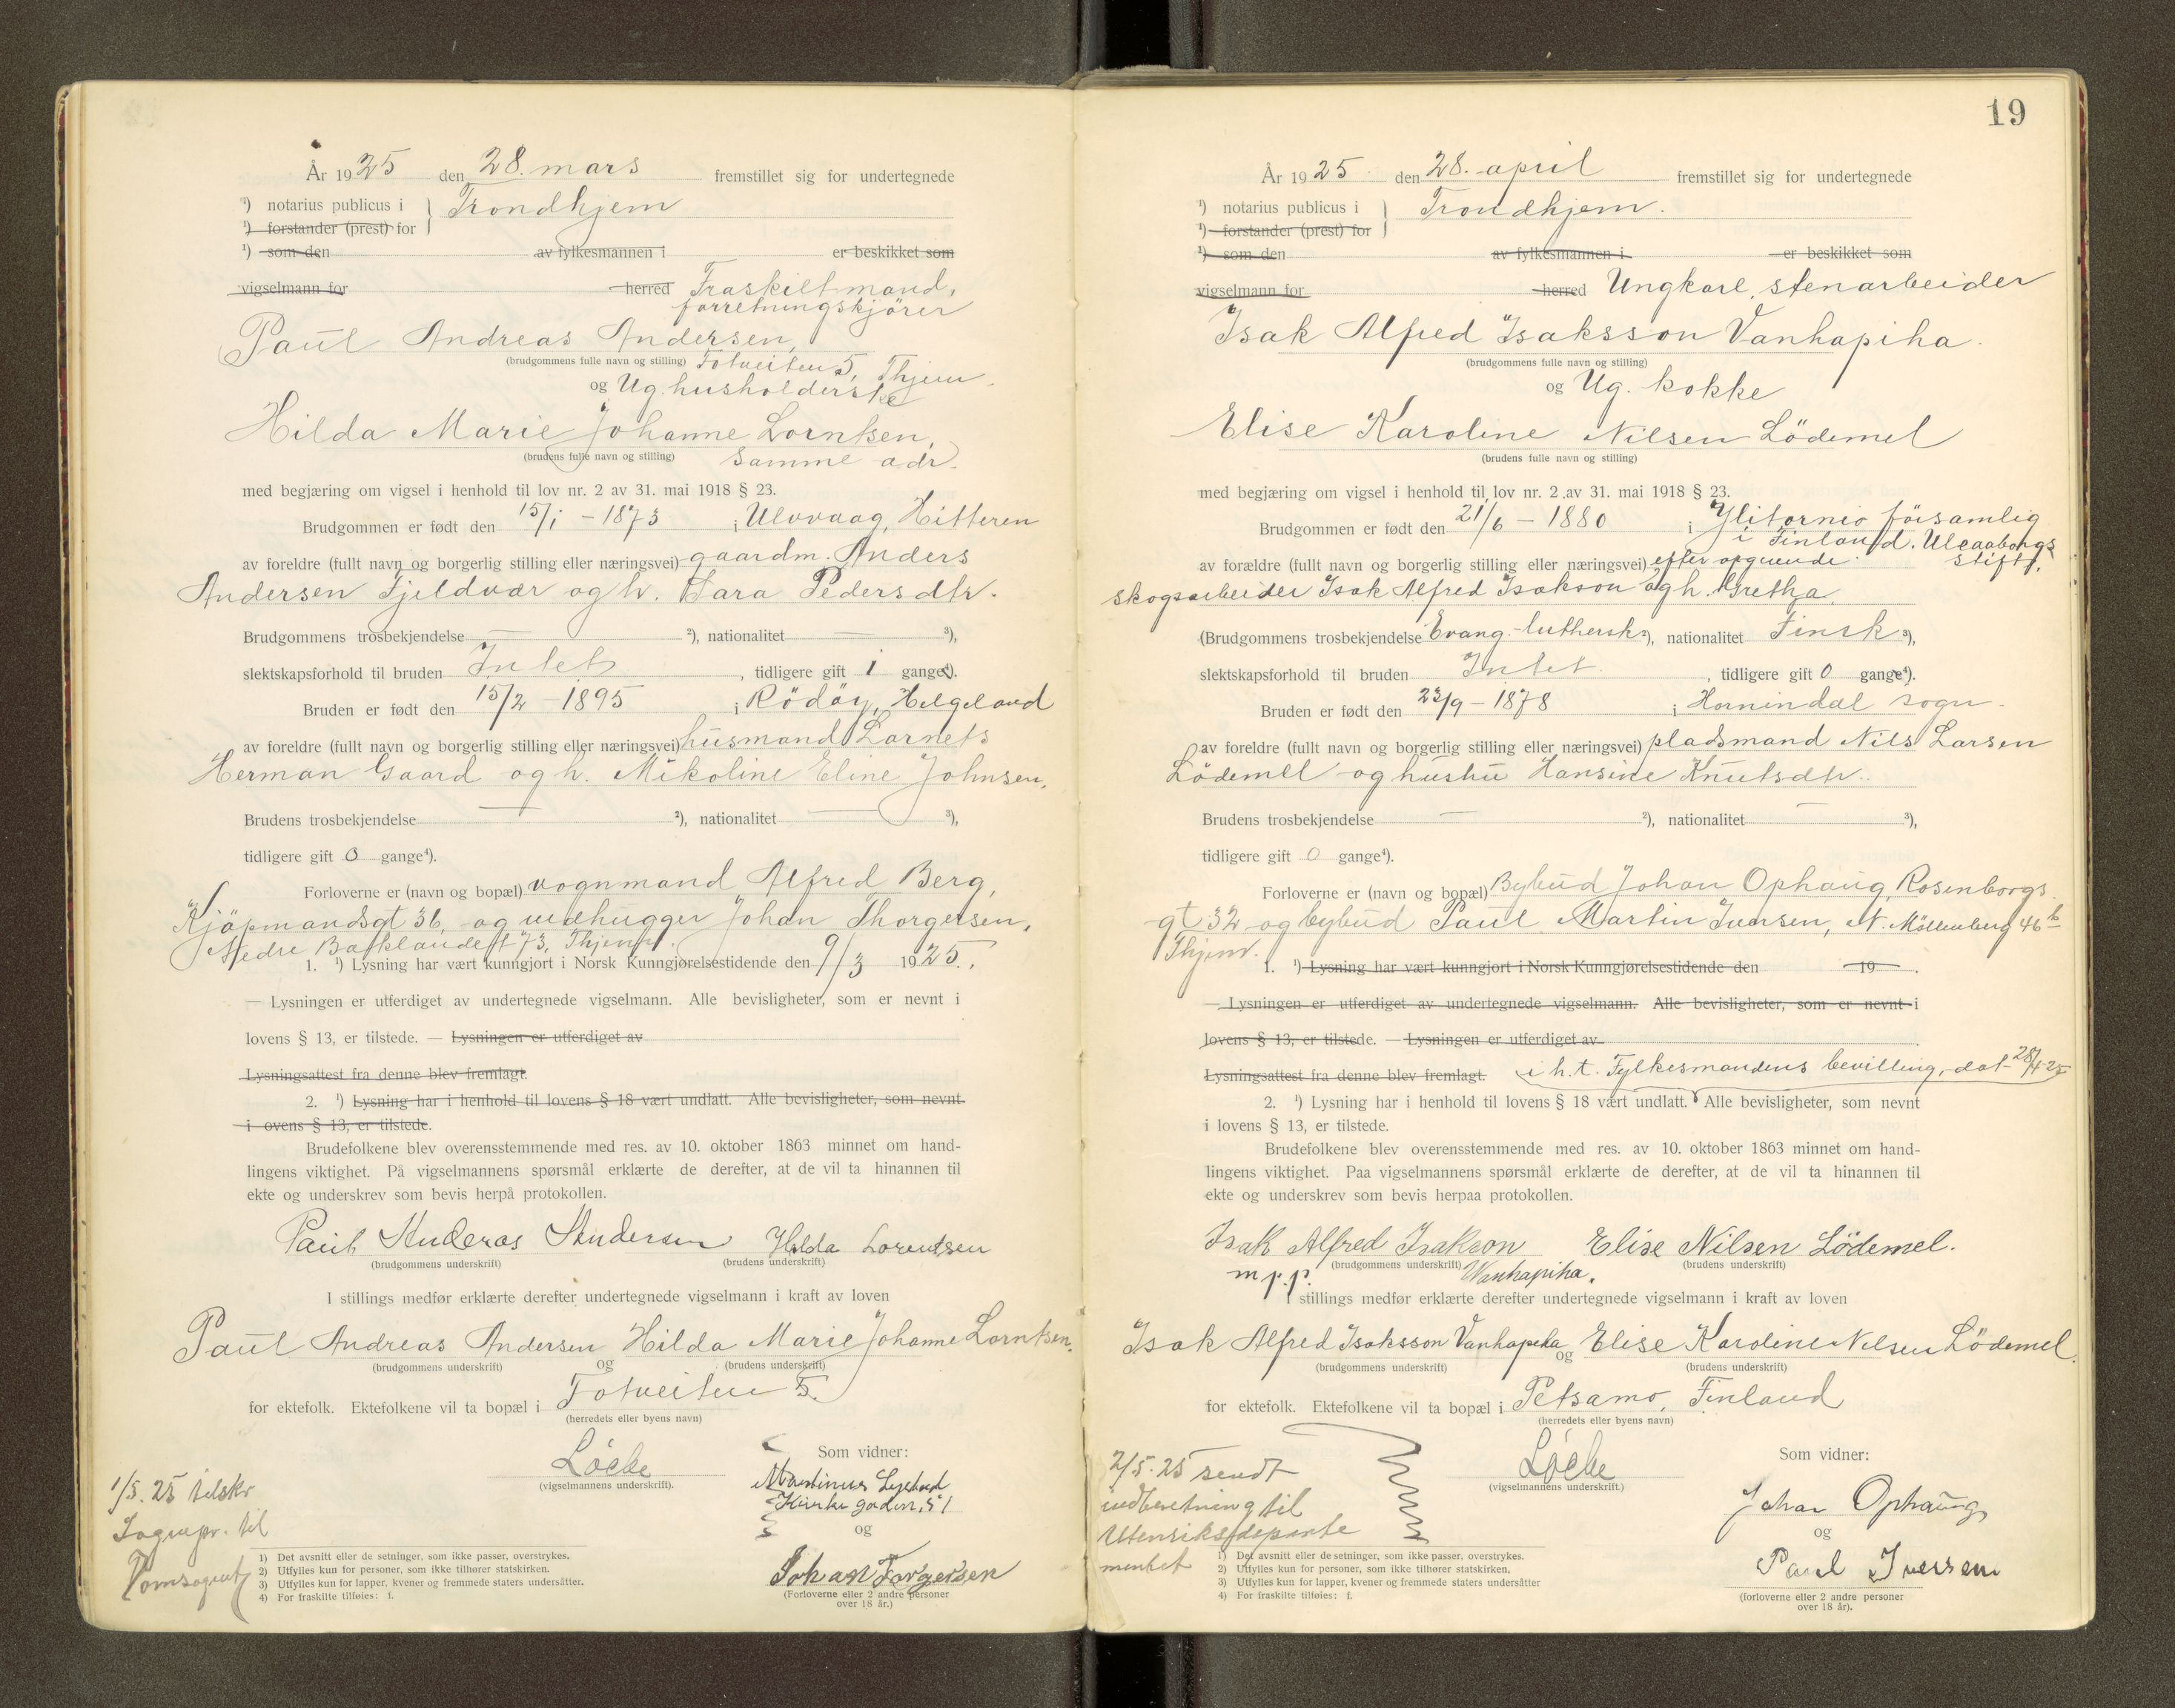 År 1925 den 28. mars fremstillet sig for undertegnede
¹) notarius publicus i } Trondhjem
¹) forstander (prest) for
¹) som den av fylkesmannen i er beskikket som
vigselmann for herred Fraskilt mand,
forretningskjører
Paul Andreas Andersen,
(brudgommens fulle navn og stilling) Totveiten 5, Thjem.
og Ug. husholderske
Hilda Marie Johanne Lorntsen,
(brudens fulle navn og stilling) samme adr.
med begjæring om vigsel i henhold til lov nr. 2 av 31. mai 1918 § 23.
Brudgommen er født den 15/1 - 1873 i Ulvvaag, Hitteren
av foreldre (fullt navn og borgerlig stilling eller næringsvei) gaardm. Anders
Andersen Fjeldvær og h. Sara Pedersdtr.
Brudgommens trosbekjendelse — ²), nationalitet — ³),
slektskapsforhold til bruden Intet, tidligere gift 1 gange⁴).
Bruden er født den 15/2 - 1895 i Rödöy, Helgeland
av foreldre (fullt navn og borgerlig stilling eller næringsvei) husmand Lornets
Herman Gaard og h. Mikoline Eline Johnsen.
Brudens trosbekjendelse — ²), nationalitet — ³),
tidligere gift 0 gange⁴).
Forloverne er (navn og bopæl) vognmand Alfred Berg,
Kjöpmandsgt 36, og vedhugger Johan Thorgersen,
Nedre Baklandet 73, Thjem.
1. ¹) Lysning har vært kunngjort i Norsk Kunngjørelsestidende den 9/3 1925.
— Lysningen er utferdiget av undertegnede vigselmann. Alle bevisligheter, som er nevnt i
lovens § 13, er tilstede. — Lysningen er utferdiget av
Lysningsattest fra denne blev fremlagt.
2. ¹) Lysning har i henhold til lovens § 18 vært undlatt. Alle bevisligheter, som nevnt
i ovens § 13, er tilstede.
Brudefolkene blev overensstemmende med res. av 10. oktober 1863 minnet om hand-
lingens viktighet. På vigselmannens spørsmål erklærte de derefter, at de vil ta hinannen til
ekte og underskrev som bevis herpå protokollen.
Paul Anderas Andersen Hilda Lorentsen
(brudgommens underskrift) (brudens underskrift)
I stillings medfør erklærte derefter undertegnede vigselmann i kraft av loven
Paul Andreas Andersen og Hilda Marie Johanne Lorntsen.
(brudgommens underskrift) (brudens underskrift)
for ektefolk. Ektefolkene vil ta bopæl i Totveiten 5.
(herredets eller byens navn)
Som vidner:
Løcke
(vigselmannens underskrift).
Martinus
og
Johan Torgersen
(Forloverne eller 2 andre personer
over 18 år.)
1/5. 25 tilskr
Sognepr. til
1) Det avsnitt eller de setninger, som ikke passer, overstrykes.
2) Utfylles kun for personer, som ikke tilhører statskirken.
3) Utfylles kun for lapper, kvener og fremmede staters undersåtter.
4) For fraskilte tilføies: f.
19
År 1925 den 28. april fremstillet sig for undertegnede
¹) notarius publicus i } Trondhjem.
¹) forstander (prest) for
¹) som den av fylkesmannen i er beskikket som
vigselmann for herred Ungkarl, stenarbeider
Isak Alfred Isaksson Vanhapiha.
(brudgommens fulle navn og stilling)
og Ug. kokke
Elise Karoline Nilsen Lödemel
(brudens fulle navn og stilling)
med begjæring om vigsel i henhold til lov nr. 2 av 31. mai 1918 § 23.
Brudgommen er født den 21/6 - 1880 i Ylitornio församlig
i Finland. Uleaaborgs
stift.
av forældre (fullt navn og borgerlig stilling eller næringsvei) efter opgivende
skogsarbeider Isak Alfred Isakson og h. Gretha.
(Brudgommens trosbekjendelse Evang.-luthersk ²), nationalitet Finsk ³),
slektskapsforhold til bruden Intet, tidligere gift 0 gange⁴).
Bruden er født den 23/9 - 1878 i Hornindal sogn.
av foreldre (fullt navn og borgerlig stilling eller næringsvei) pladsmand Nils Larsen
Lödemel og hustru Hansine Knutsdtr.
Brudens trosbekjendelse — ²), nationalitet — ³),
tidligere gift 0 gange⁴).
Forloverne er (navn og bopæl) Bybud Johan Ophaug, Rosenborgs
gt 32 og bybud Paul Martin Iversen, N. Möllenberg 46 b
Thjem.
1. ¹) Lysning har vært kunngjort i Norsk Kunngjørelsestidende den 19 .
— Lysningen er utferdiget av undertegnede vigselmann. Alle bevisligheter, som er nevnt i
lovens § 13, er tilstede. — Lysningen er utferdiget av
Lysningsattest fra denne blev fremlagt. i h.t. Fylkesmandens bevilling, dat 28/4-25
2. ¹) Lysning har i henhold til lovens § 18 vært undlatt. Alle bevisligheter, som nevnt
i lovens § 13, er tilstede.
Brudefolkene blev overensstemmende med res. av 10. oktober 1863 minnet om hand-
lingens viktighet. Paa vigselmannens spørsmål erklærte de derefter, at de vil ta hinannen til
ekte og underskrev som bevis herpaa protokollen.
Isak Alfred Isakson Elise Nilsen Lödemel.
(brudgommens underskrift) (brudens underskrift)
m.p.p. Wanhapiha.
I stillings medfør erklærte derefter undertegnede vigselmann i kraft av loven
Isak Alfred Isaksson Vanhapiha og Elise Karoline Nilsen Lödemel.
(brudgommens underskrift) (brudens underskrift)
for ektefolk. Ektefolkene vil ta bopæl i Petsamo, Finland
(herredets eller byens navn)
Som vidner:
Løcke
(vigselmannens underskrift.)
Johan Ophaug
og
Paul Iversen
(forloverne eller 2 andre personer
over 18 år).
2/5. 25 sendt
indberetning til
Utenriksdeparte
mentet
1) Det avsnitt eller de setninger, som ikke passer, overstrykes.
2) Utfylles kun for personer, som ikke tilhører statskirken.
3) Utfylles kun for lapper, kvener og fremmede staters undersåtter
4) For fraskilte tilføies: f.